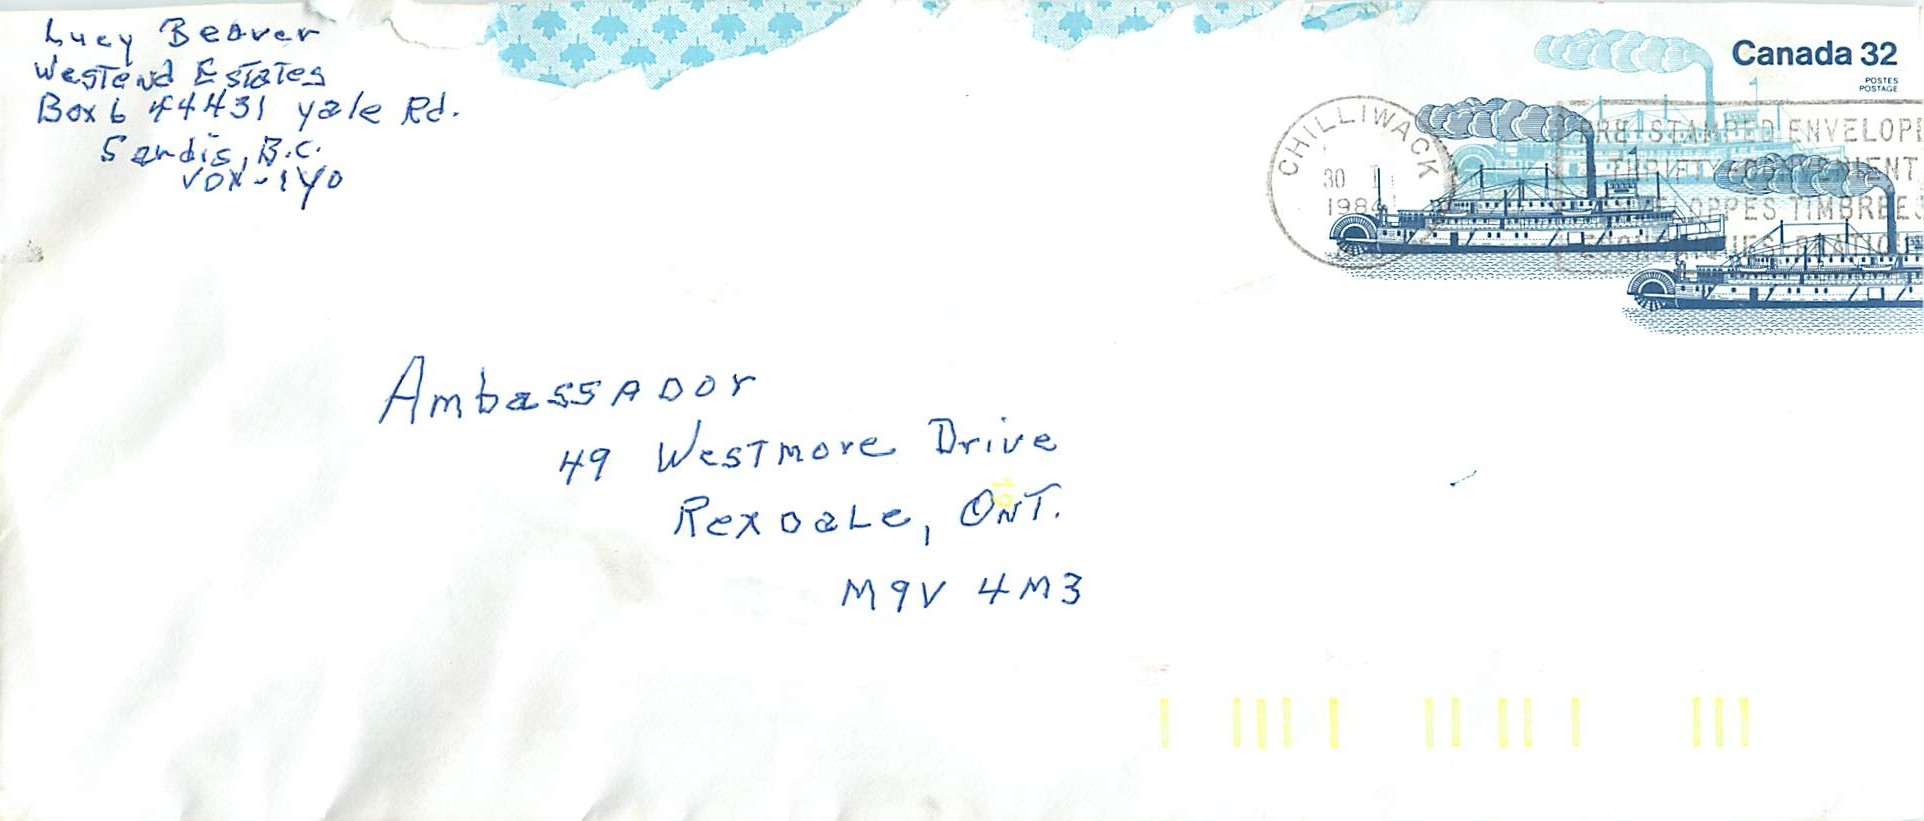 Lucy Beaver
Westend Estates
Box 6 44431 Yale Rd.
Sardis, B.C.
V0X-1Y0
Canada 32
POSTES
POSTAGE
CHILLIWACK
30
1984
STAMPED ENVELOPE
THRIFTY CONVENIENT
TIMBREES
Ambassador
49 Westmore Drive
Rexdale, Ont.
M9V 4M3